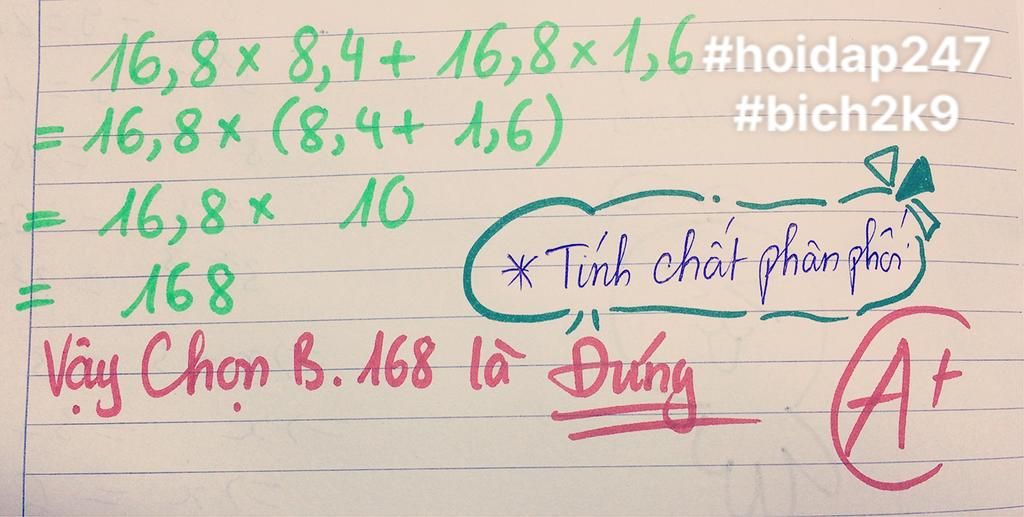 16,8 × 8,4 + 16,8 × 1,6
#hoidap247
#bich2k9
= 16,8 × (8,4 + 1,6)
= 16,8 × 10
* Tính chất phân phối
= 168
Vậy Chọn B. 168 là Đúng
A+